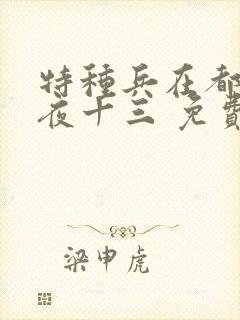 特種兵在都
夜十三 免費
梁申虎